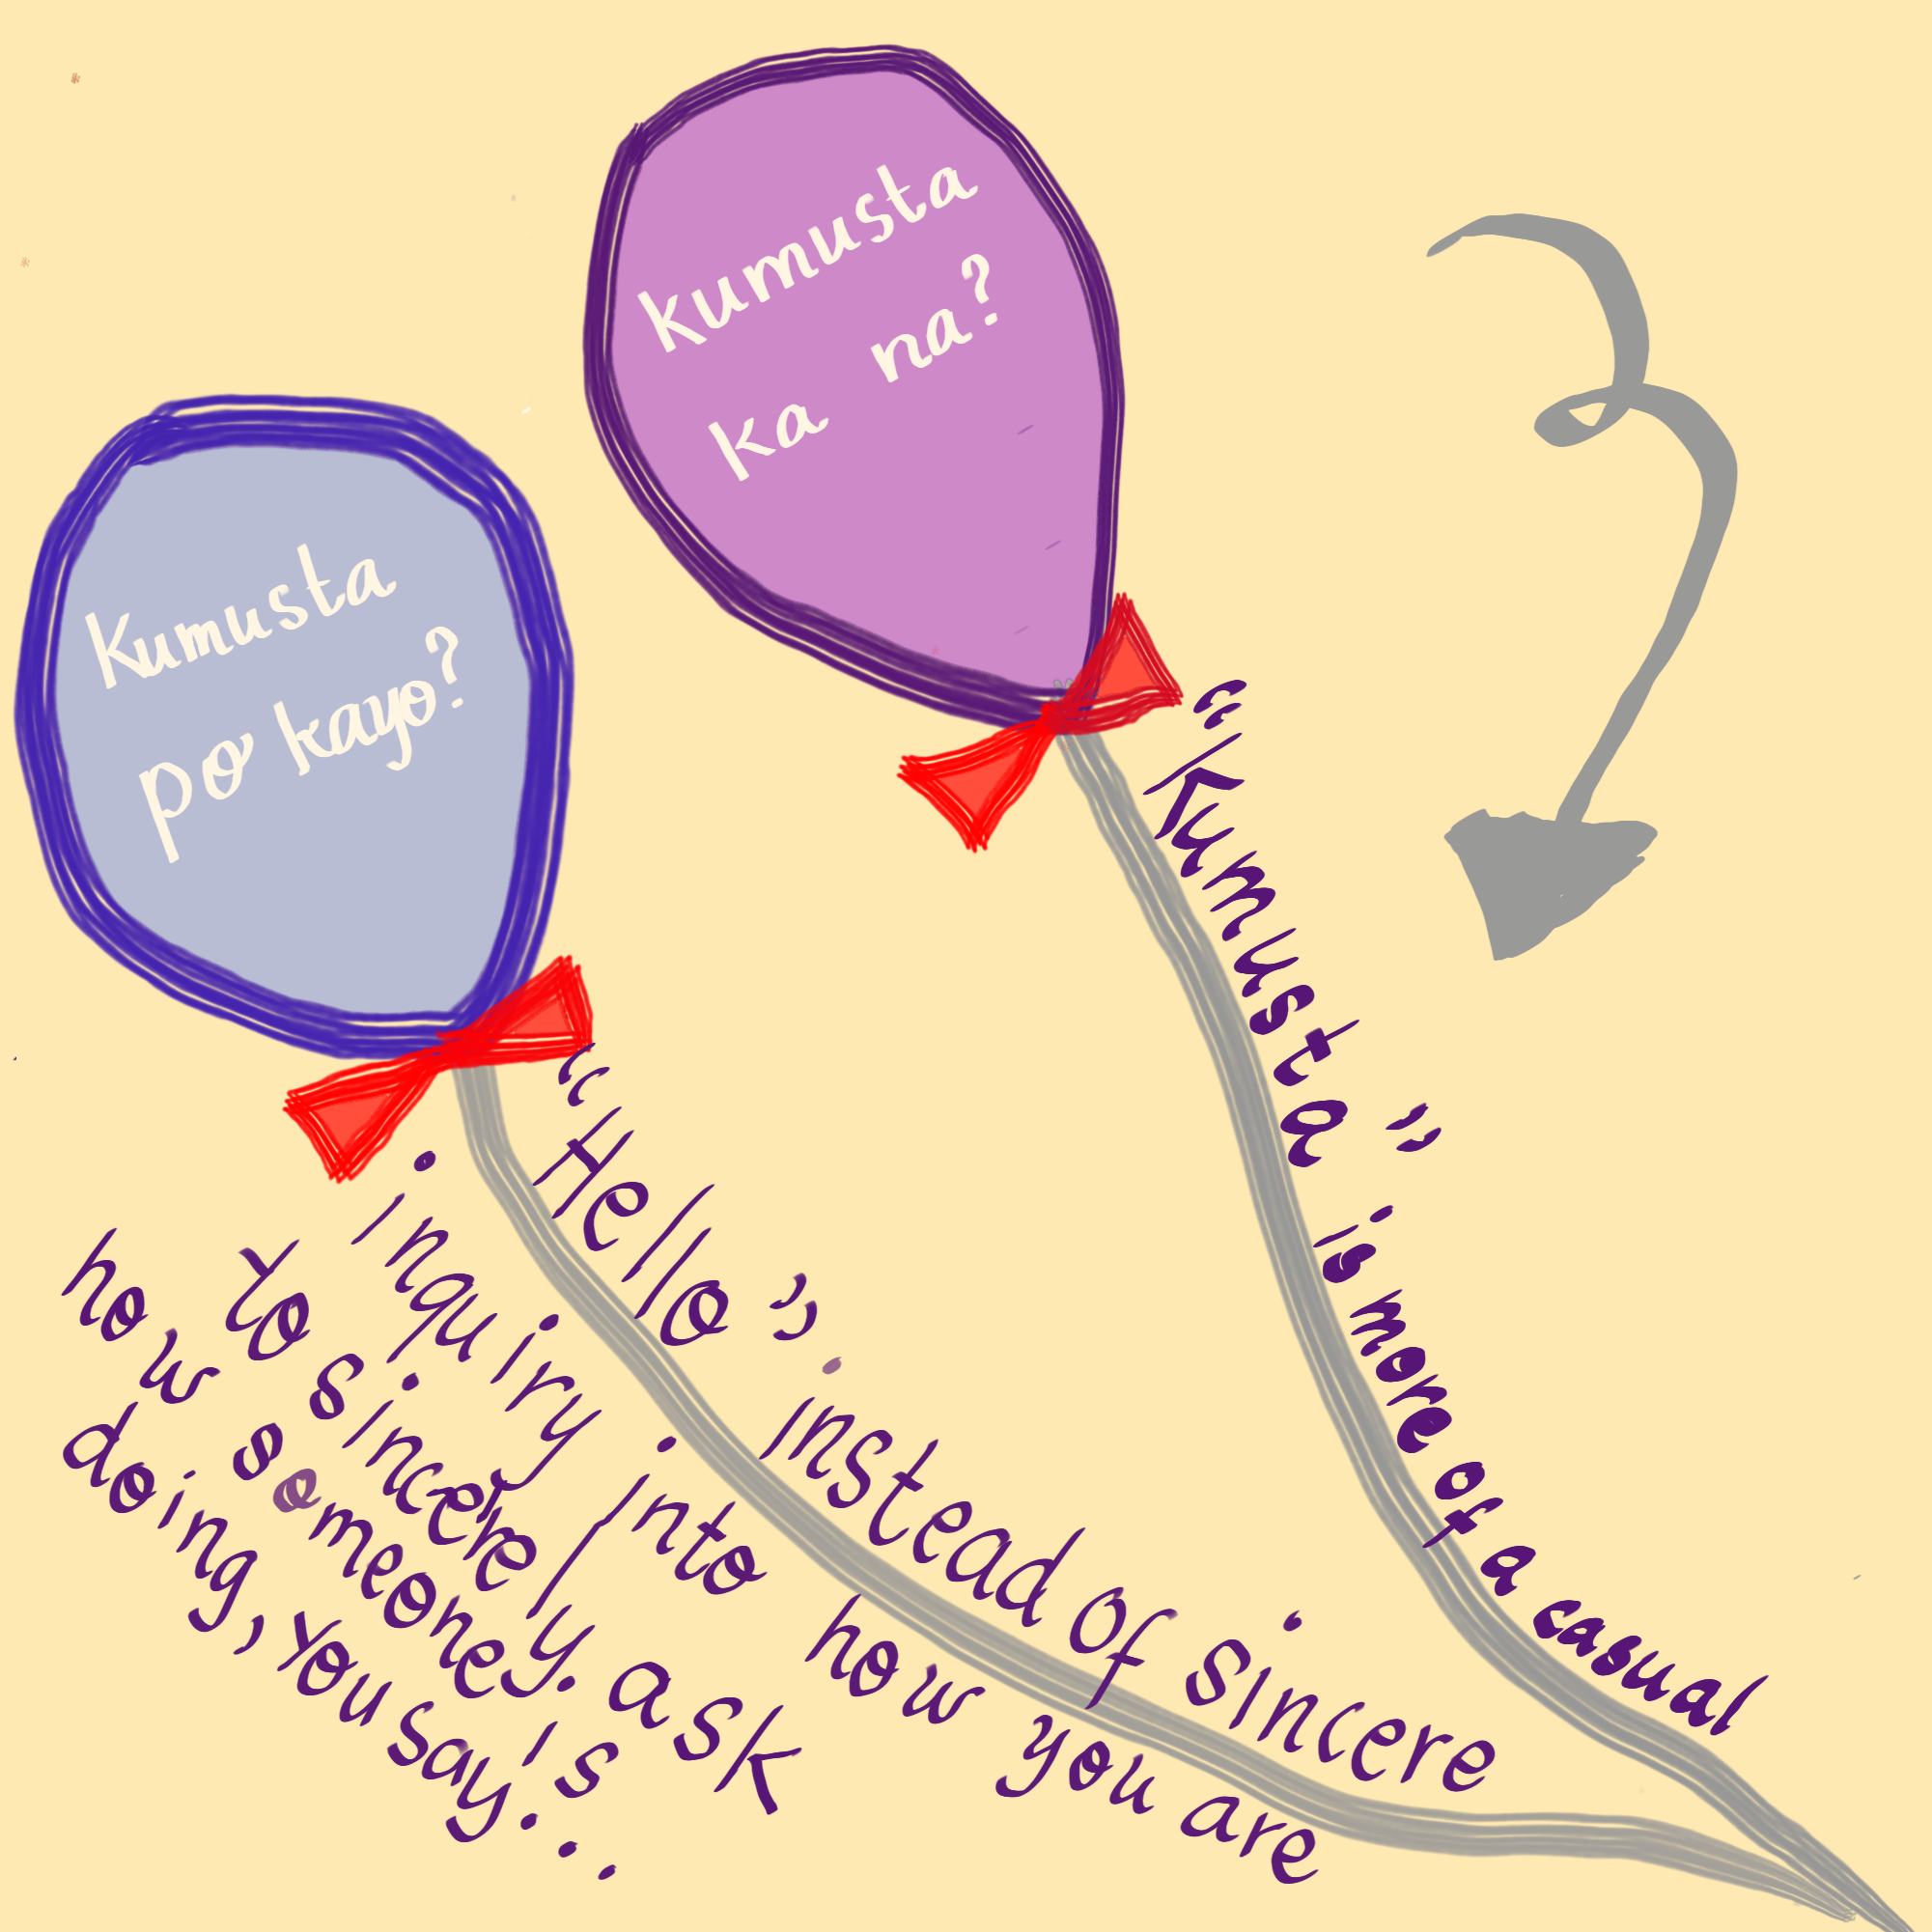 Kumusta
ka na?
Kumusta
po kayo?
"Kumusta" is more of a casual
"Hello", instead of sincere
inquiry into how you are
to sincerely ask
how someone is
doing, you say...